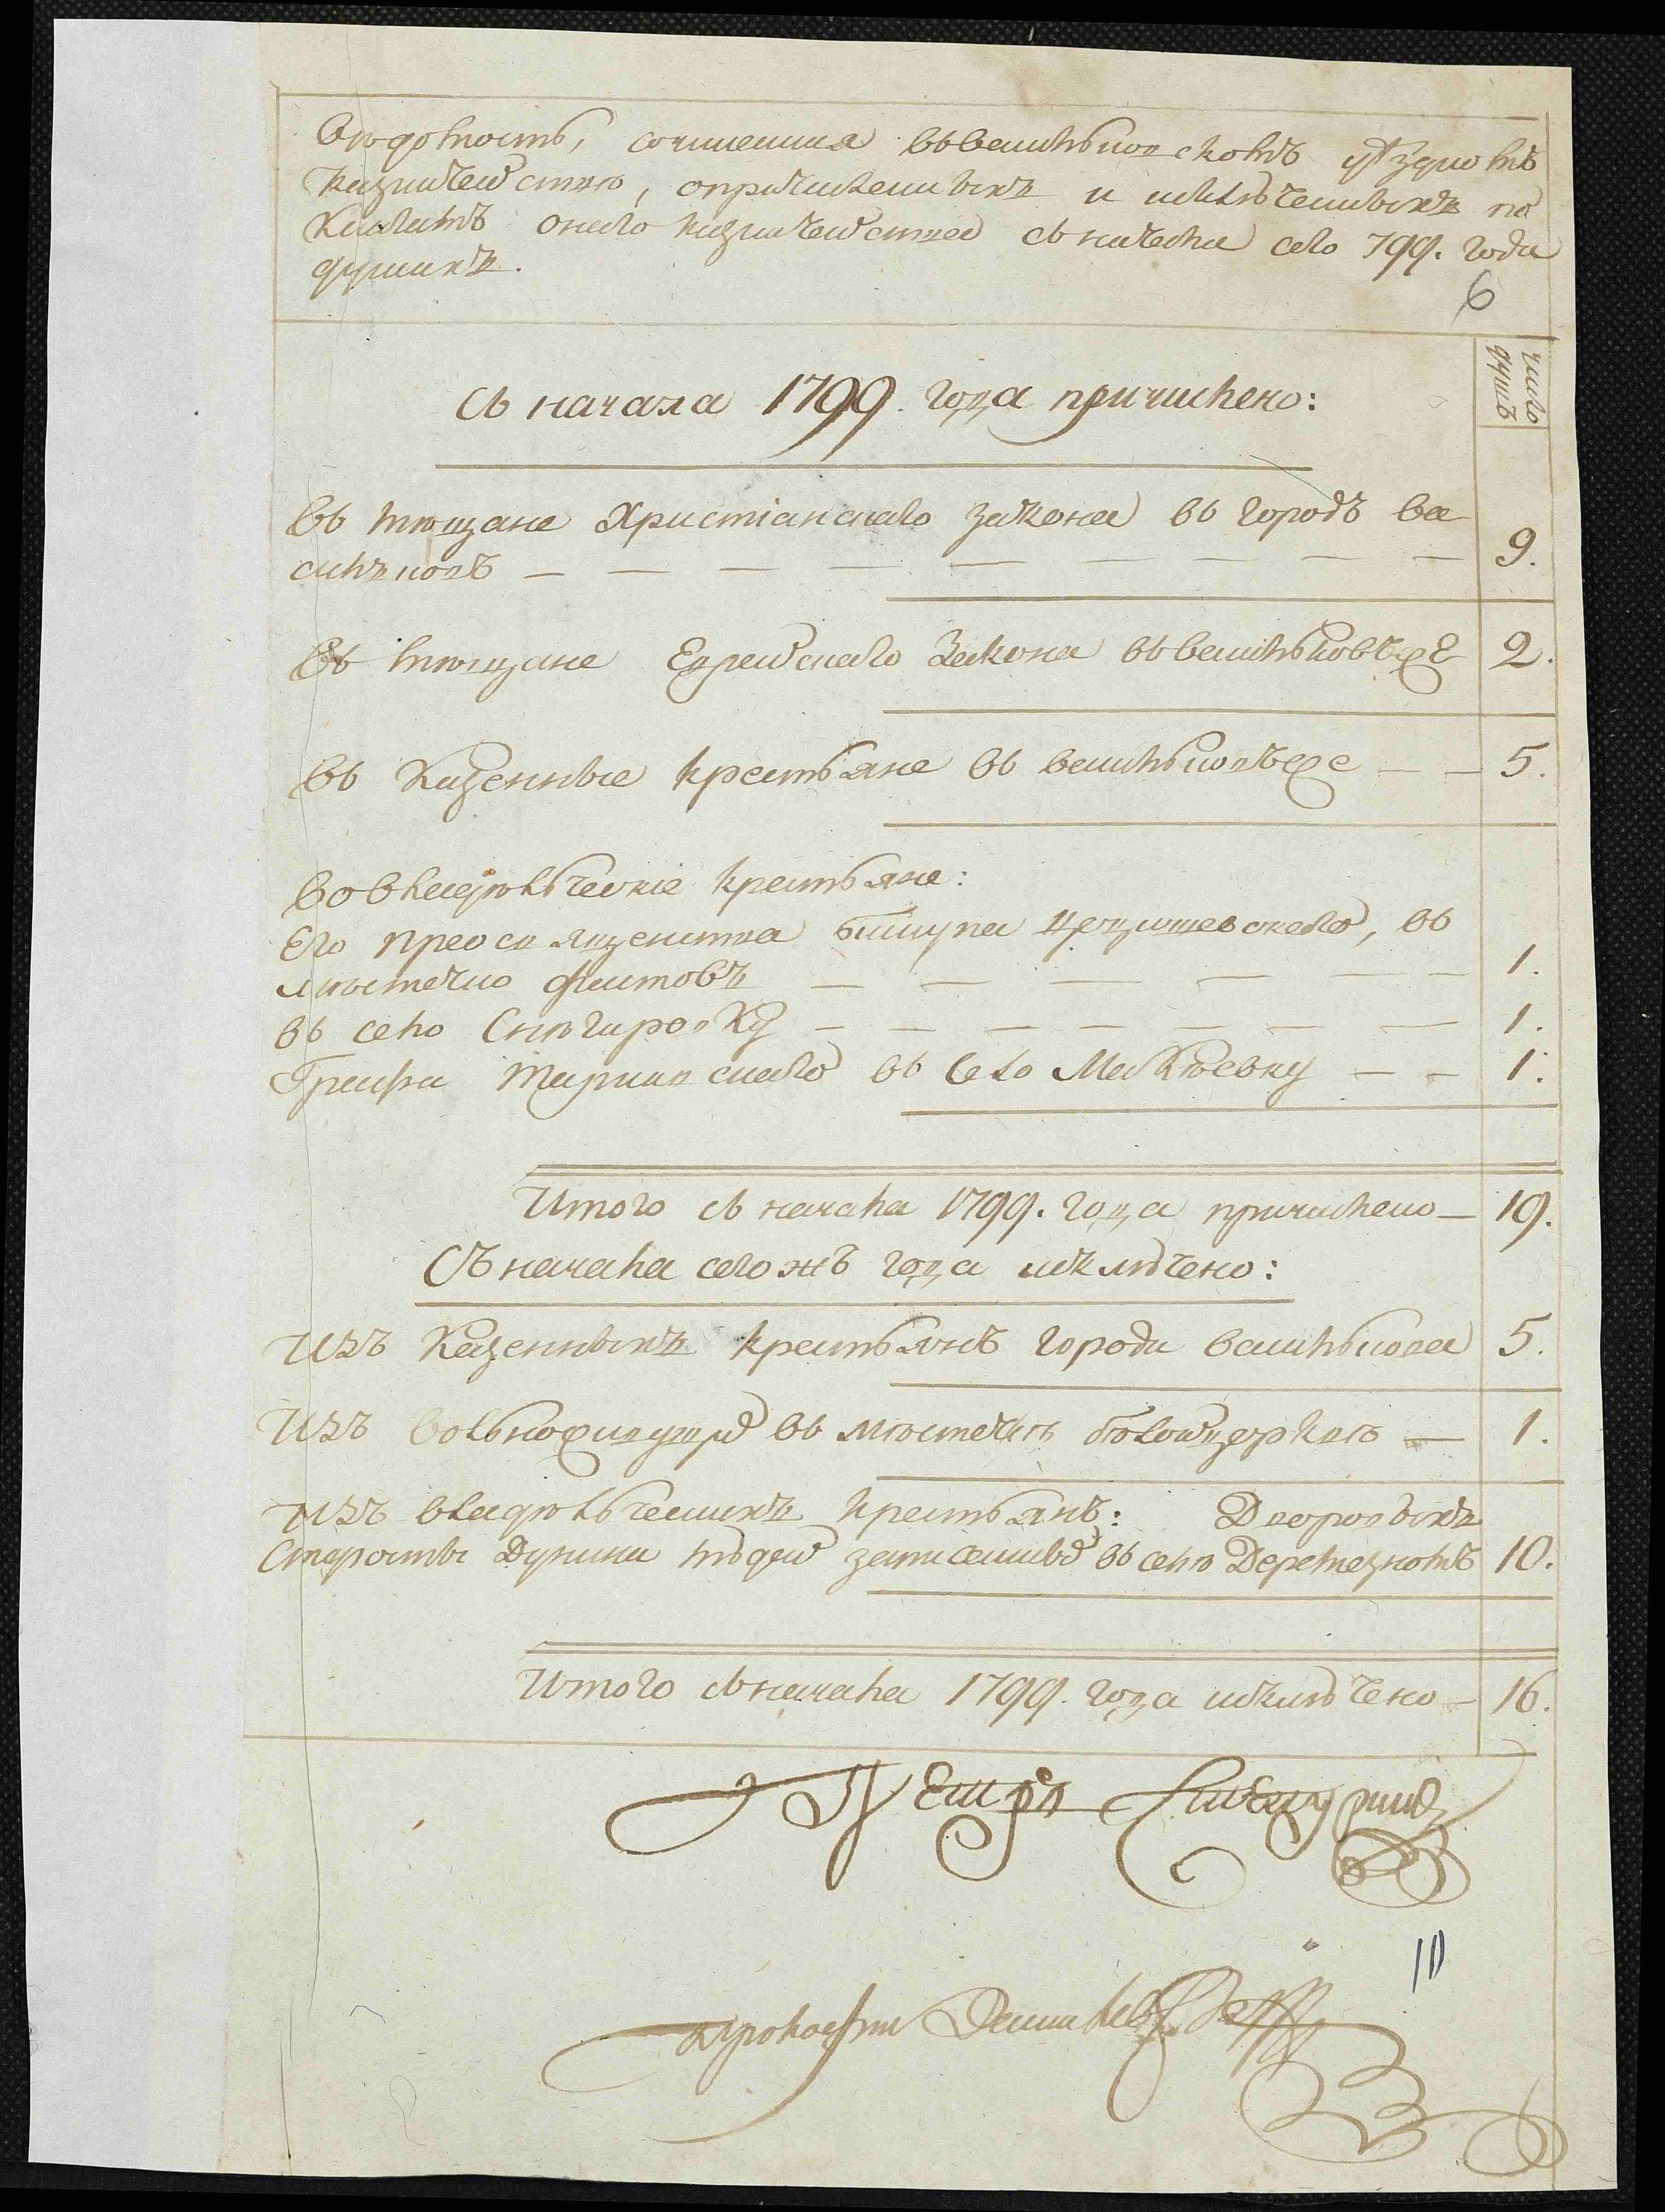 Вѣдомость, сочиненная въ васильковскомъ уѣздномъ
казначействѣ, опричисленныхъ и исключенныхъ по
силамъ онаго казначейства съ начала сего 799. года
душахъ.
6
число
душъ
Съ начала 1799. года причислено:
Въ мѣщане Христіанскаго закона въ городѣ ва
сильковѣ — — — — — — — — 9.
Въ мѣщане Еврейскаго Закона въ васильковѣже 2.
Въ Казенные крестьяне въ васильковѣже — — 5.
Во владѣльческіе крестьяне:
Его преосвященства бискупа Цецишевскаго, въ
мѣстечко фастовъ — — — — — — 1.
въ село Снѣгировку — — — — — — 1.
Графа Тарновскаго въ село — — 1.
Итого съ начала 1799. года причислено — 19.
Съ начала сегожъ года исключено:
Изъ Казенныхъ крестьянъ города василькова 5.
Изъ въ мѣстечкѣ белойцерквѣ — 1.
Изъ владѣльческихъ крестьянъ: Дворовыхъ
Старосты людей въ селѣ 10.
Итого съ начала 1799. года исключено — 16.
Петръ
10
Прокофий